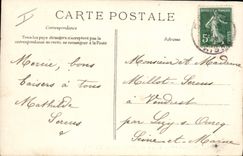 CARTE POSTALE
Tous les pays étrangers n'acceptent pas la
correspondance au recto, se renseigner à la Poste
Correspondance
Adresse
5c
Morue, bons
baisers à tous
Mathilde
Serus
Monsieur et Madame
Millot Serus
à Vendrest
par Lizy s/ Ourcq
Seine et Marne